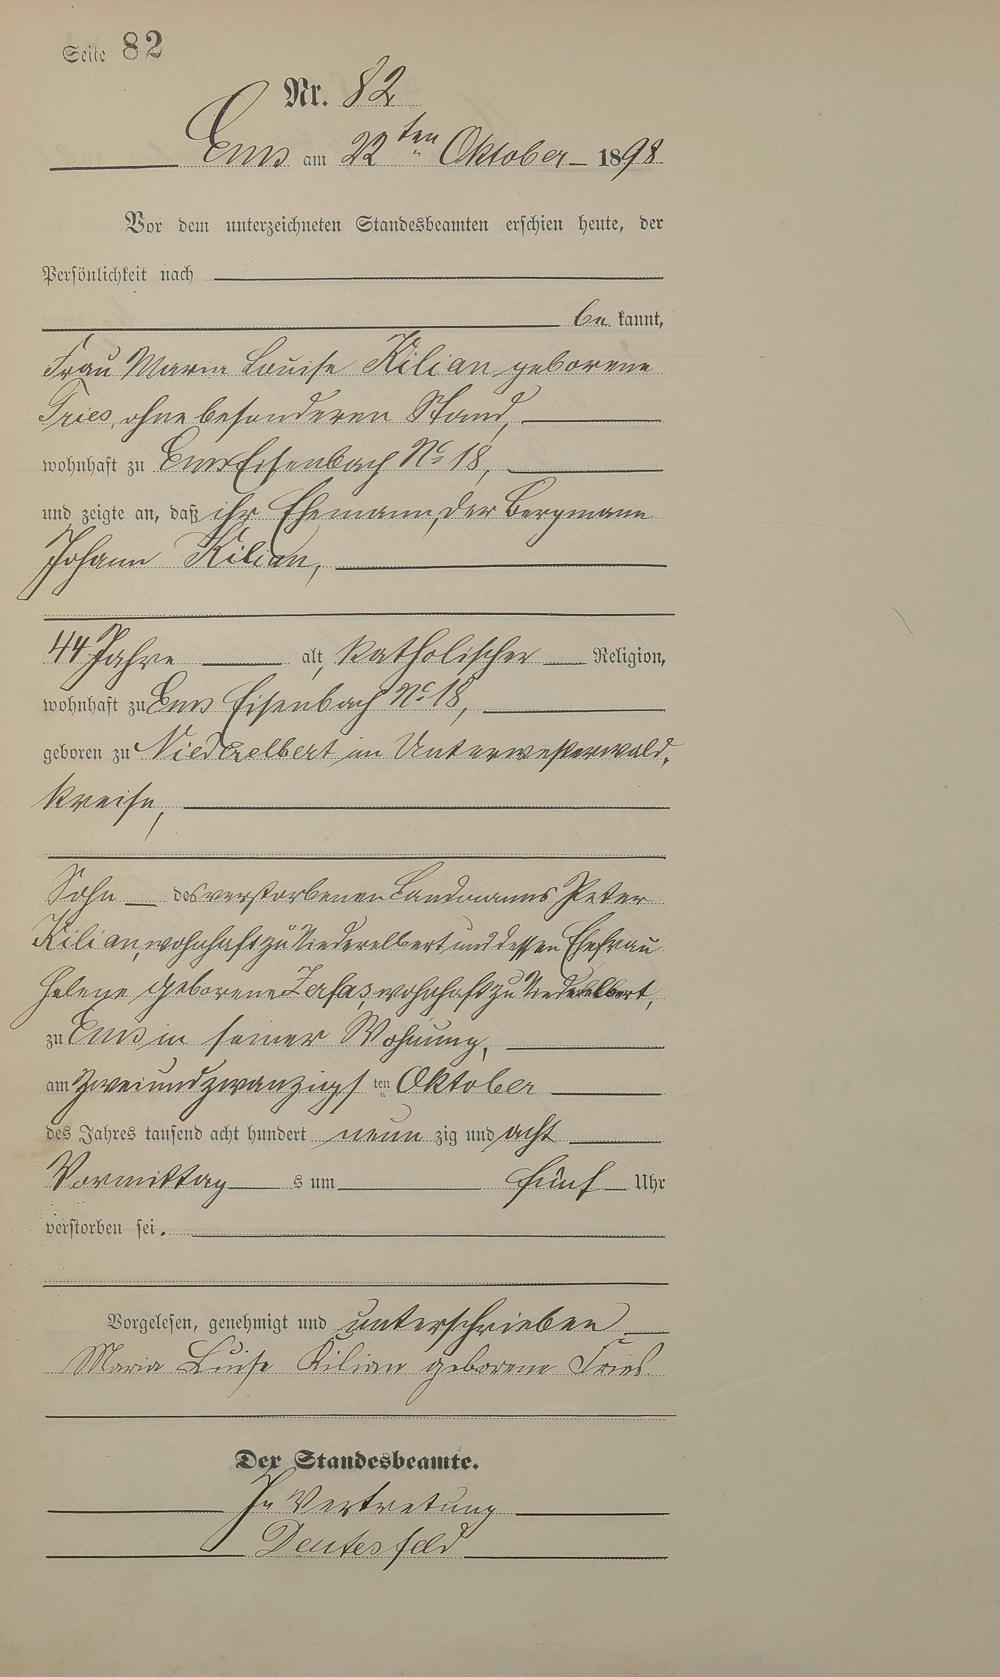 Seite 82
Nr. 82
Ems am 22ten Oktober 1898
Vor dem unterzeichneten Standesbeamten erschien heute, der
Persönlichkeit nach
be kannt,
Frau Maria Louise Kilian geborene
Fries, ohne besonderen Stand,
wohnhaft zu Ems Eisenbach No 18,
und zeigte an, daß ihr Ehemann, der Bergmann
Johann Kilian,
44 Jahre alt, katholischer Religion,
wohnhaft zu Ems Eisenbach No 18,
geboren zu Niederelbert im Unterwesterwald-
kreise,
Sohn des verstorbenen Landmanns Peter
Kilian, wohnhaft zu Niederelbert und dessen Ehefrau
Helene geborene Zerfas, wohnhaft zu Niederelbert,
zu Ems in seiner Wohnung,
am zweiundzwanzigs ten Oktober
des Jahres tausend acht hundert neun zig und acht
Vormittag s um fünf Uhr
verstorben sei.
Vorgelesen, genehmigt und unterschrieben
Maria Luise Kilian geborene Fries.
Der Standesbeamte.
In Vertretung
Deutesfeld